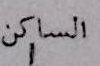 الساكن
ا